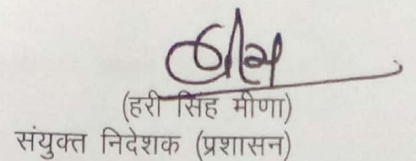 (हरी सिंह मीणा)
संयुक्त निदेशक (प्रशासन)